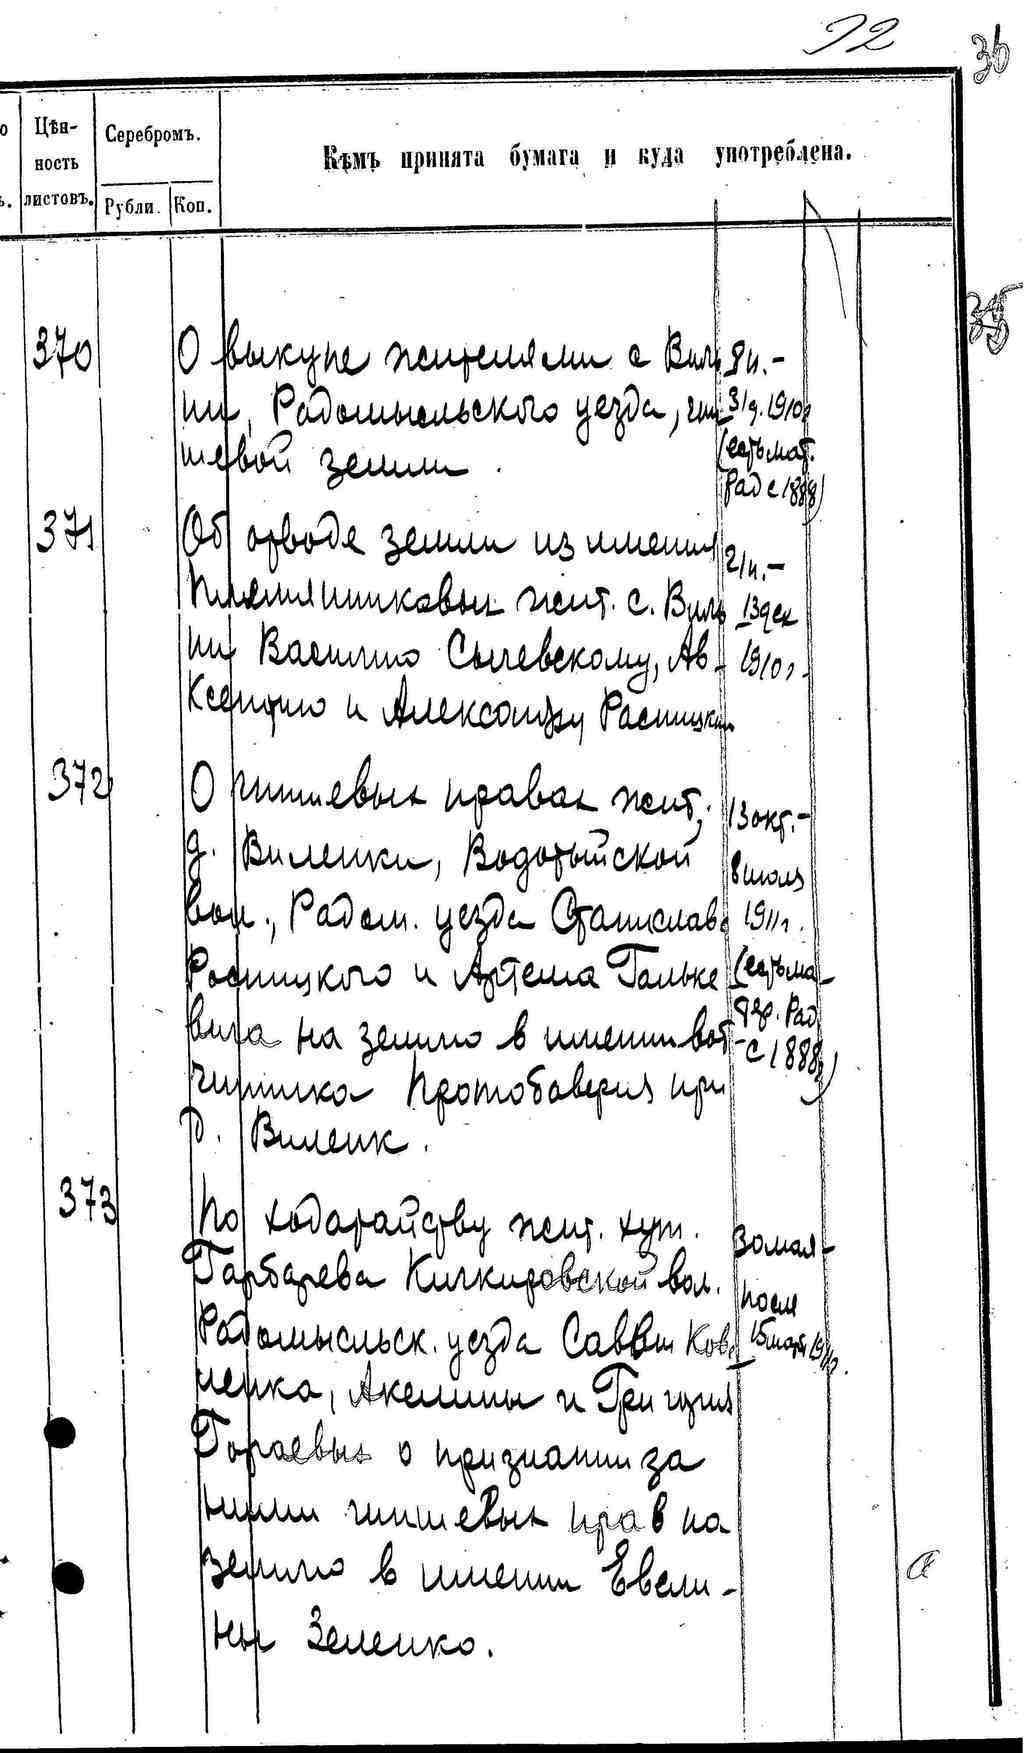 72
36
Цѣн-
ность
листовъ.
Серебромъ.
Рубли.
Коп.
Кѣмъ принята бумага и куда употреблена.
35
370
О выкупе жителями с Виль
ни, Радомысльского уезда, чин
шевой земли.
8 н. -
31 д. 1910 г
(есть мат.
Рад с 1888)
371
Об отводе земли из имения
Племянниковых жит. с. Виль
ни Василию Сычевскому, Ав-
Ксентию и Александру Расницким
2 н. -
13 дек
1910 г.
372
О чиншевых правах жит.
д. Виленки, Водотыйской
вол., Радом. уезда Станислава
Росницкого и Артема Гальке
вича на землю в имении вот
чинника Протобаверия при
д. Виленк.
13 окт. -
8 июля
1911 г.
(есть ма-
тер. Рад
с 1888 г)
373
По ходатайству жит. хут.
Гарбарева Кичкировской вол.
Радомысльск. уезда Саввы Ков
ленка, Акелины и Григория
Гораевых о признании за
ними чиншевых прав на
землю в имении Евели-
ны Зеленко.
30 мая -
после
15 марта 1911 г.